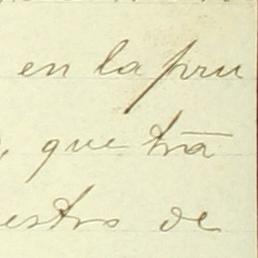 en la pru
, que trã
estro de